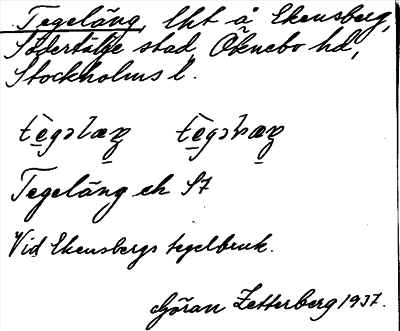 Tegeläng, lht å Ekensberg,
Södertälje stad, Öknebo hd,
Stockholms l.
Tegeläng ek 57
Vid Ekensbergs tegelbruk.
Göran Zetterberg 1937.